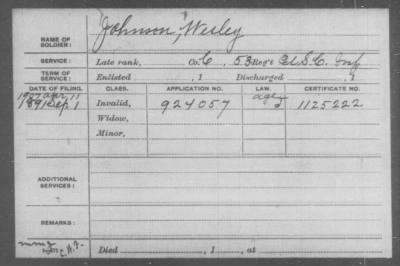 NAME OF SOLDIER: Johnson, Wesley
SERVICE: Late rank, Co. C, 53 Reg't U.S.C. Inf
TERM OF SERVICE: Enlisted , 1 Discharged , 1
DATE OF FILING. CLASS. APPLICATION NO. LAW. CERTIFICATE NO.
1907 Apr. 11 age
1891 Sep. 1 Invalid, 924057 1125222
Widow,
Minor,
ADDITIONAL SERVICES:
REMARKS:
Died , 1 , at